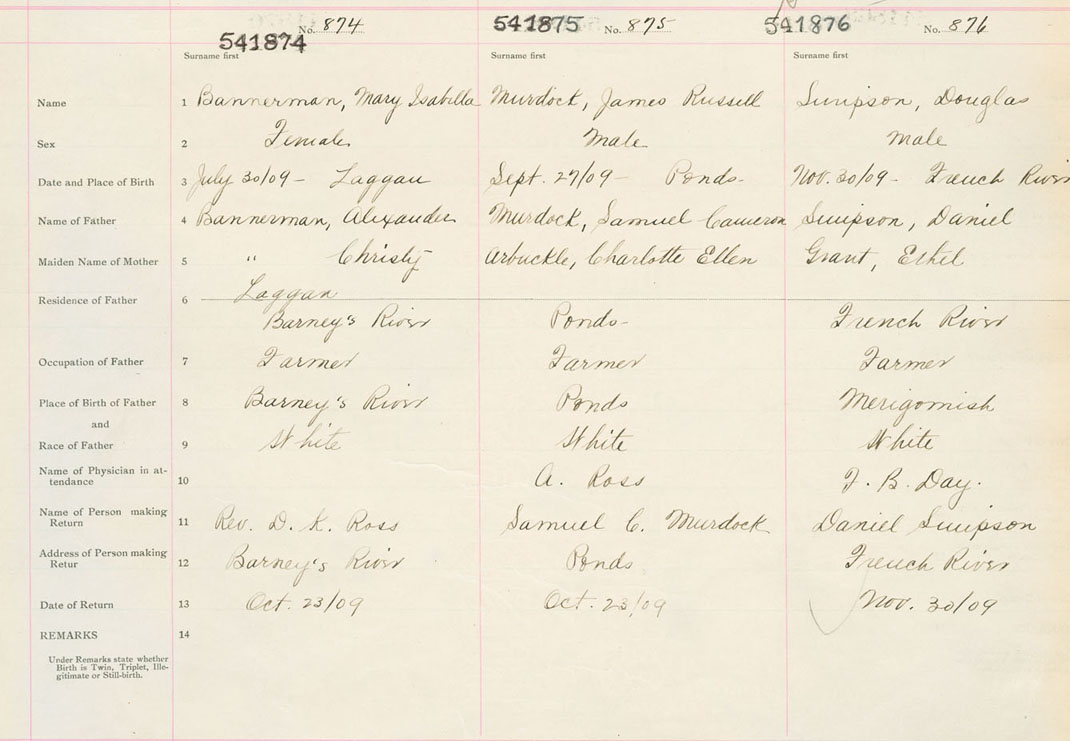 541874 No. 874 541875 No. 875 541876 No. 876
Surname first Surname first Surname first
Name 1 Bannerman, Mary Isabella Murdock, James Russell Simpson, Douglas
Sex 2 Female Male Male
Date and Place of Birth 3 July 30/09 - Laggan Sept. 27/09 - Ponds - Nov. 30/09 - French River
Name of Father 4 Bannerman, Alexander Murdock, Samuel Cameron Simpson, Daniel
Maiden Name of Mother 5 " Christy Arbuckle, Charlotte Ellen Grant, Ethel
Residence of Father 6 Laggan
Barney's River Ponds - French River
Occupation of Father 7 Farmer Farmer Farmer
Place of Birth of Father 8 Barney's River Ponds Merigomish
and
Race of Father 9 White White White
Name of Physician in at-
tendance 10 A. Ross F. B. Day.
Name of Person making
Return 11 Rev. D. K. Ross Samuel C. Murdock Daniel Simpson
Address of Person making
Retur 12 Barney's River Ponds French River
Date of Return 13 Oct. 23/09 Oct. 23/09 Nov. 30/09
REMARKS 14
Under Remarks state whether
Birth is Twin, Triplet, Ille-
gitimate or Still-birth.